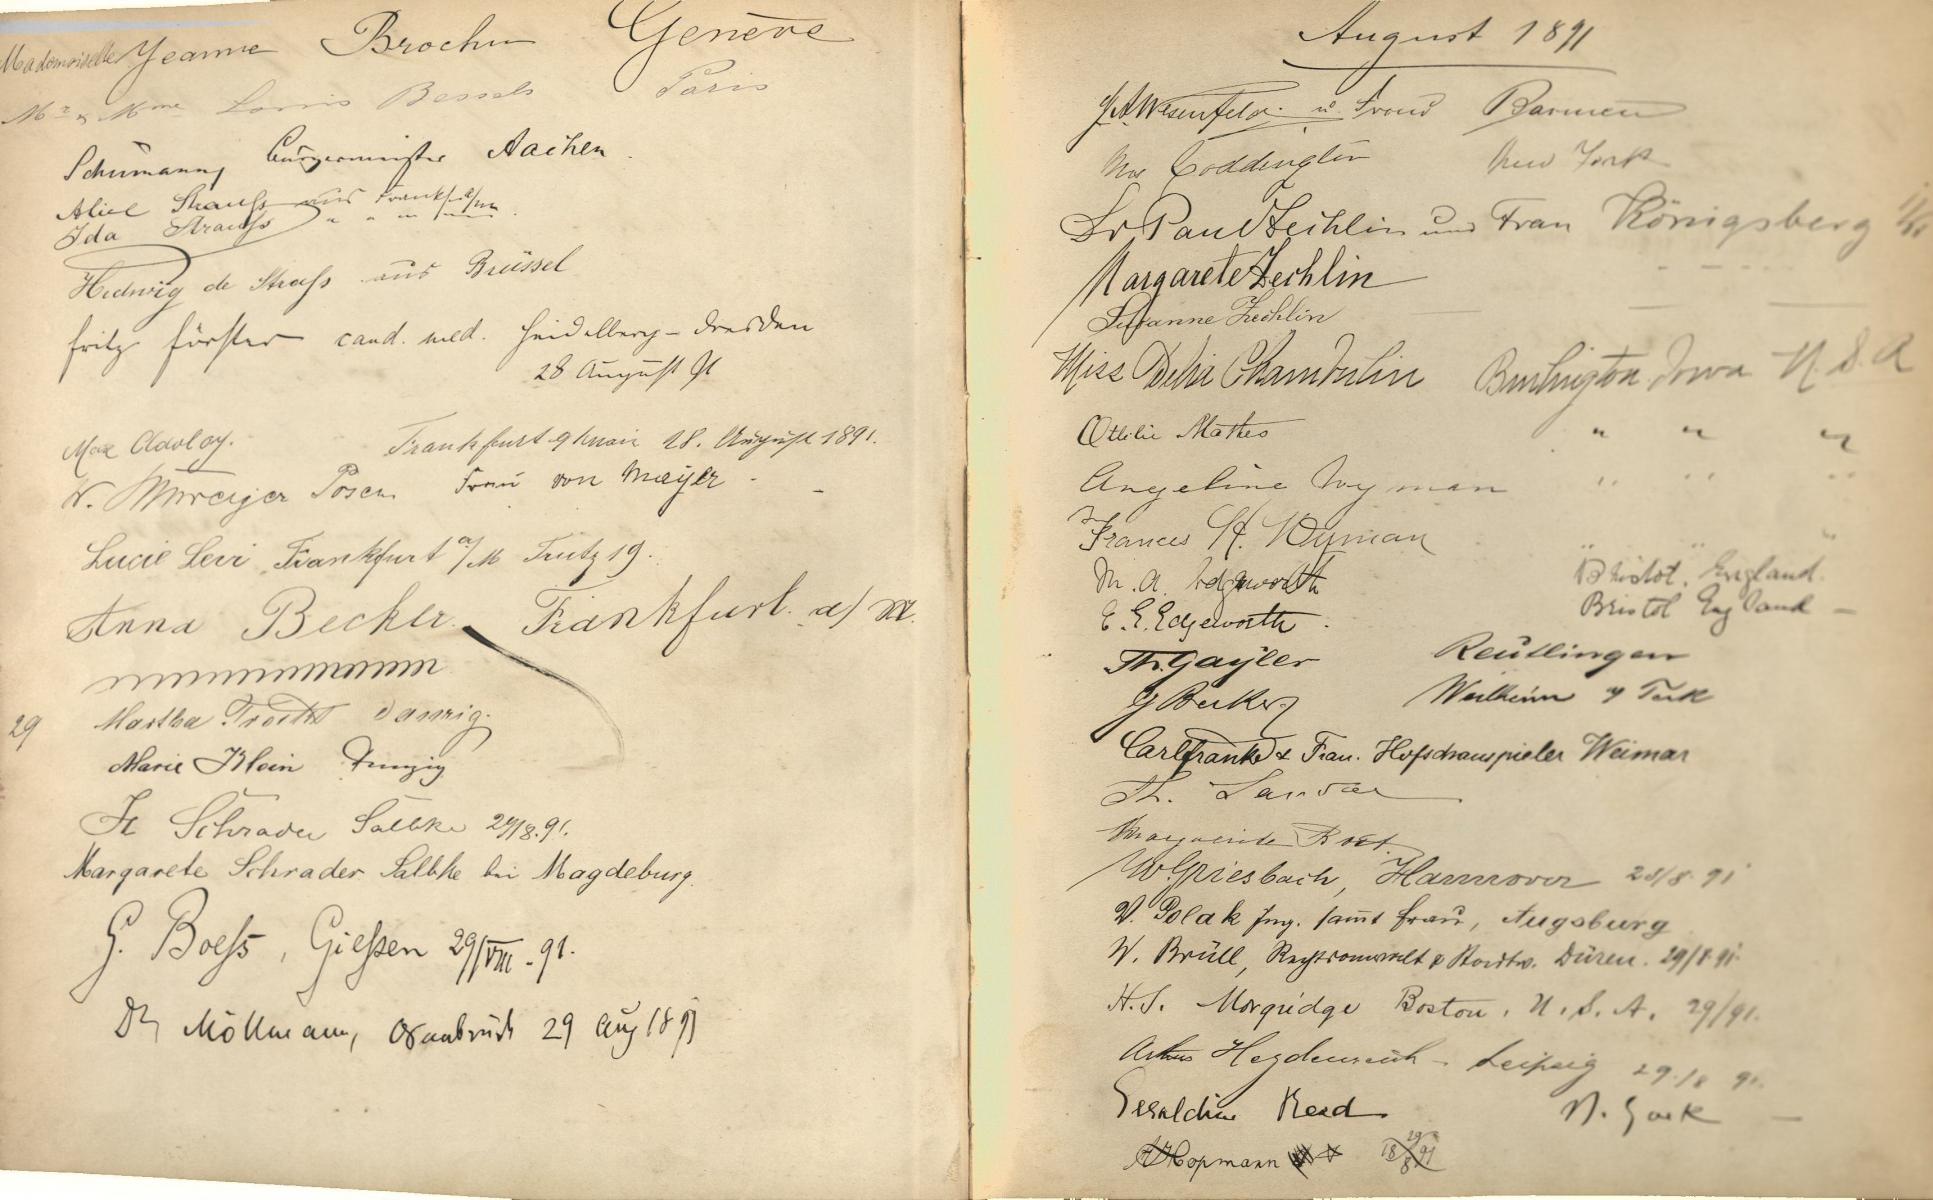 Mademoiselle Jeanne Brochu Genève
Mr & Mme Louis Bessels Paris
Schümann, Bürgermeister Aachen.
Alice Strauß aus Frankf. a/m
Ida Strauß " " "
Hedwig de Straß aus Brüssel
Fritz Förster cand. med. Heidelberg – Dresden
28 August 91
Max Frankfurt a/main 28. August 1891.
Posen Frau von Meyer
Lucie Levi Frankfurt a/M 19.
Anna Becker Frankfurt a/ M.
29 Martha Danzig.
Marie Klein Danzig
Fr Schrader Salbke 29/8.91.
Margarete Schrader Salbke bei Magdeburg
G. Boeß, Gießen 29/VIII.91.
Dr Möllmann, Osnabrück 29 Aug 1891
August 1891
Wesenfeld u. Frau Barmen
Coddington New York
Dr Paul Zechlin und Frau Königsberg
Margarete Zechlin
Susanne Zechlin
Miss Delia Chamberlin Burlington Iowa U.S.A
Ottilie Mathes " " "
Angeline Wyman " " "
Frances H. Wyman
M. A. Edgeworth Bristol. England.
E. G. Edgeworth. Bristol England –
Th. Gayler Reutlingen
G Becker Weilheim a/ Teck
Carl Franke & Frau. Hofschauspieler Weimar
Th.
Marguerite
W. Griesbach, Hannover 28/8. 91
V. Polak Ing. samt Frau, Augsburg
W. Brüll, Rechtsanwalt Düren. 29/8 91
H.S. Morquidge Boston. U.S.A. 29/91.
Heydenreich – Leipzig 29./8 91.
Geraldine Read N. York –
A Hopmann 29/8 18 91